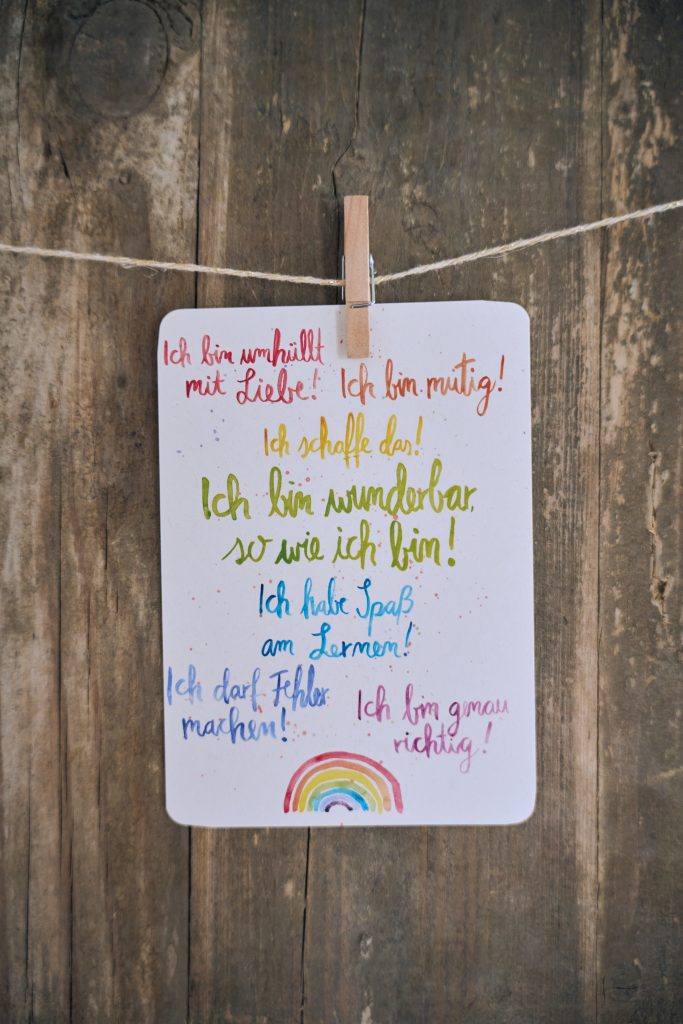 Ich bin umhüllt
mit Liebe!
Ich bin mutig!
Ich schaffe das!
Ich bin wunderbar,
so wie ich bin!
Ich habe Spaß
am Lernen!
Ich darf Fehler
machen!
Ich bin genau
richtig!